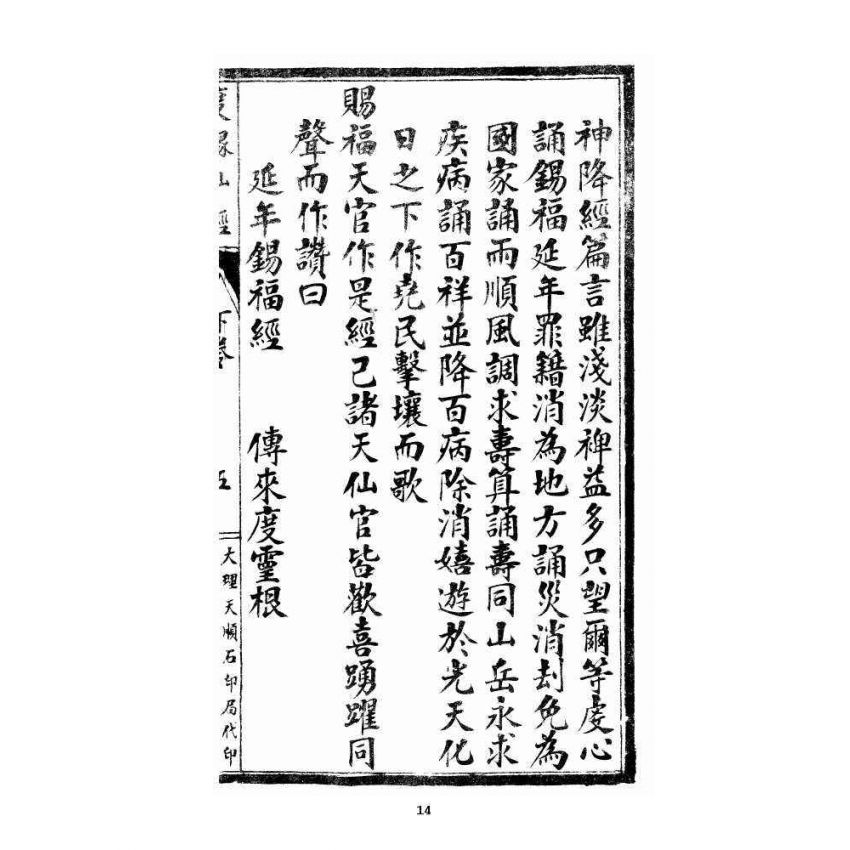 神降經篇言雖淺淡裨益多只望爾等虔心
誦錫福延年罪籍消為地方誦災消刦免為
國家誦雨順風調求壽算誦壽同山岳永求
疾病誦百祥並降百病除消嬉遊於光天化
日之下作堯民擊壤而歌
賜福天官作是經已諸天仙官皆歡喜踴躍同
聲而作讚曰
延年錫福經　傳來度靈根
仙經
下卷
五
大理天順石印局代印
14